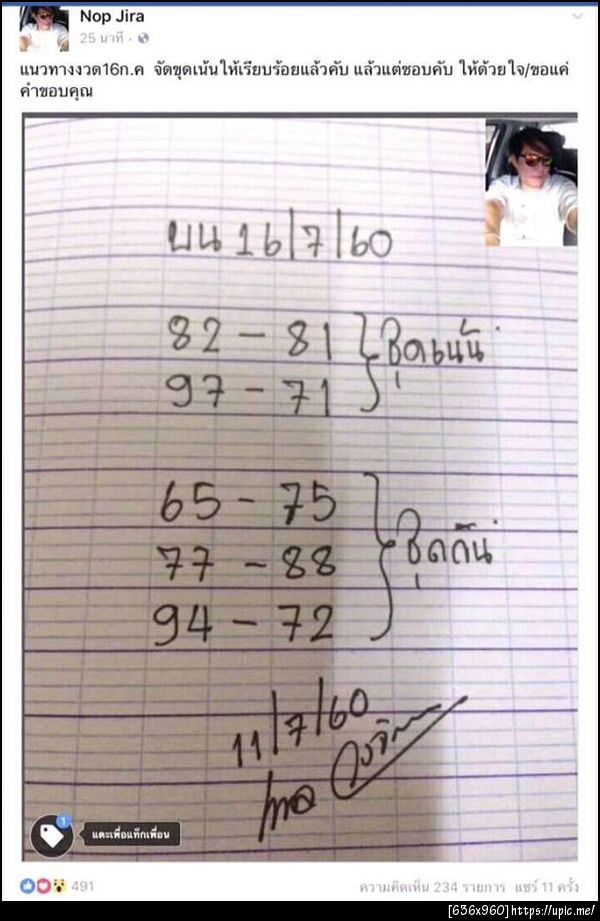 Nop Jira
25 นาที ·
แนวทางงวด16ก.ค จัดชุดเน้นให้เรียบร้อยแล้วคับ แล้วแต่ชอบคับ ให้ด้วยใจ/ขอแค่
คำขอบคุณ
บน 16/7/60
82 - 81
97 - 71
ชุดเน้น
65 - 75
77 - 88
94 - 72
ชุดกัน
11/7/60
1
แตะเพื่อแท็กเพื่อน
491
ความคิดเห็น 234 รายการ แชร์ 11 ครั้ง
[636x960]https://upic.me/